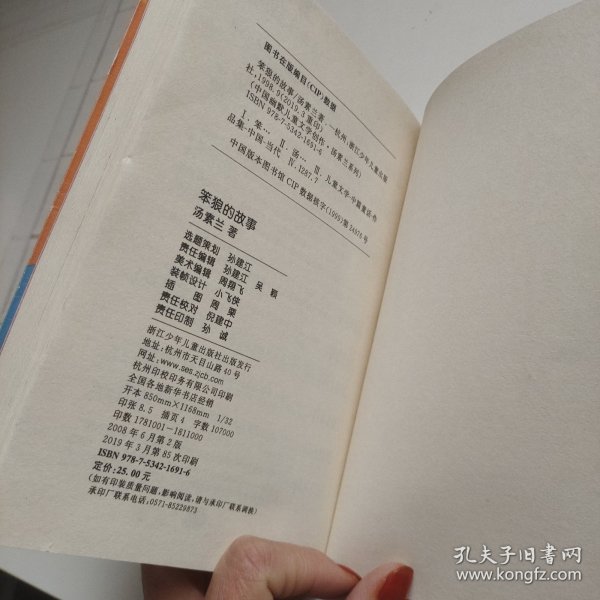 图书在版编目(CIP)数据
笨狼的故事/汤素兰著. —杭州:浙江少年儿童出版
社,1998.9(2019.3重印)
(中国幽默儿童文学创作·汤素兰系列)
ISBN 978-7-5342-1691-6
Ⅰ.笨… Ⅱ.汤… Ⅲ.儿童文学-中篇童话-作
品集-中国-当代 Ⅳ.I287.7
中国版本图书馆CIP数据核字(1999)第24976号
笨狼的故事
汤素兰 著
选题策划 孙建江
责任编辑 孙建江 吴颖
美术编辑 周翔飞
装帧设计 小飞侠
插图 周栗
责任校对 倪建中
责任印制 孙诚
浙江少年儿童出版社出版发行
地址:杭州市天目山路40号
www.ses.zjcb.com
杭州印校印务有限公司印刷
全国各地新华书店经销
开本 850mm×1168mm 1/32
印张 8.5 插页 4 字数 107000
印数 1781001-1811000
2008年6月第2版
2019年3月第85次印刷
ISBN 978-7-5342-1691-6
定价:25.00元
(如有印装质量问题,影响阅读,请与承印厂联系调换)
承印厂联系电话:0571-85229873
孔夫子旧书网
www.kongfz.com